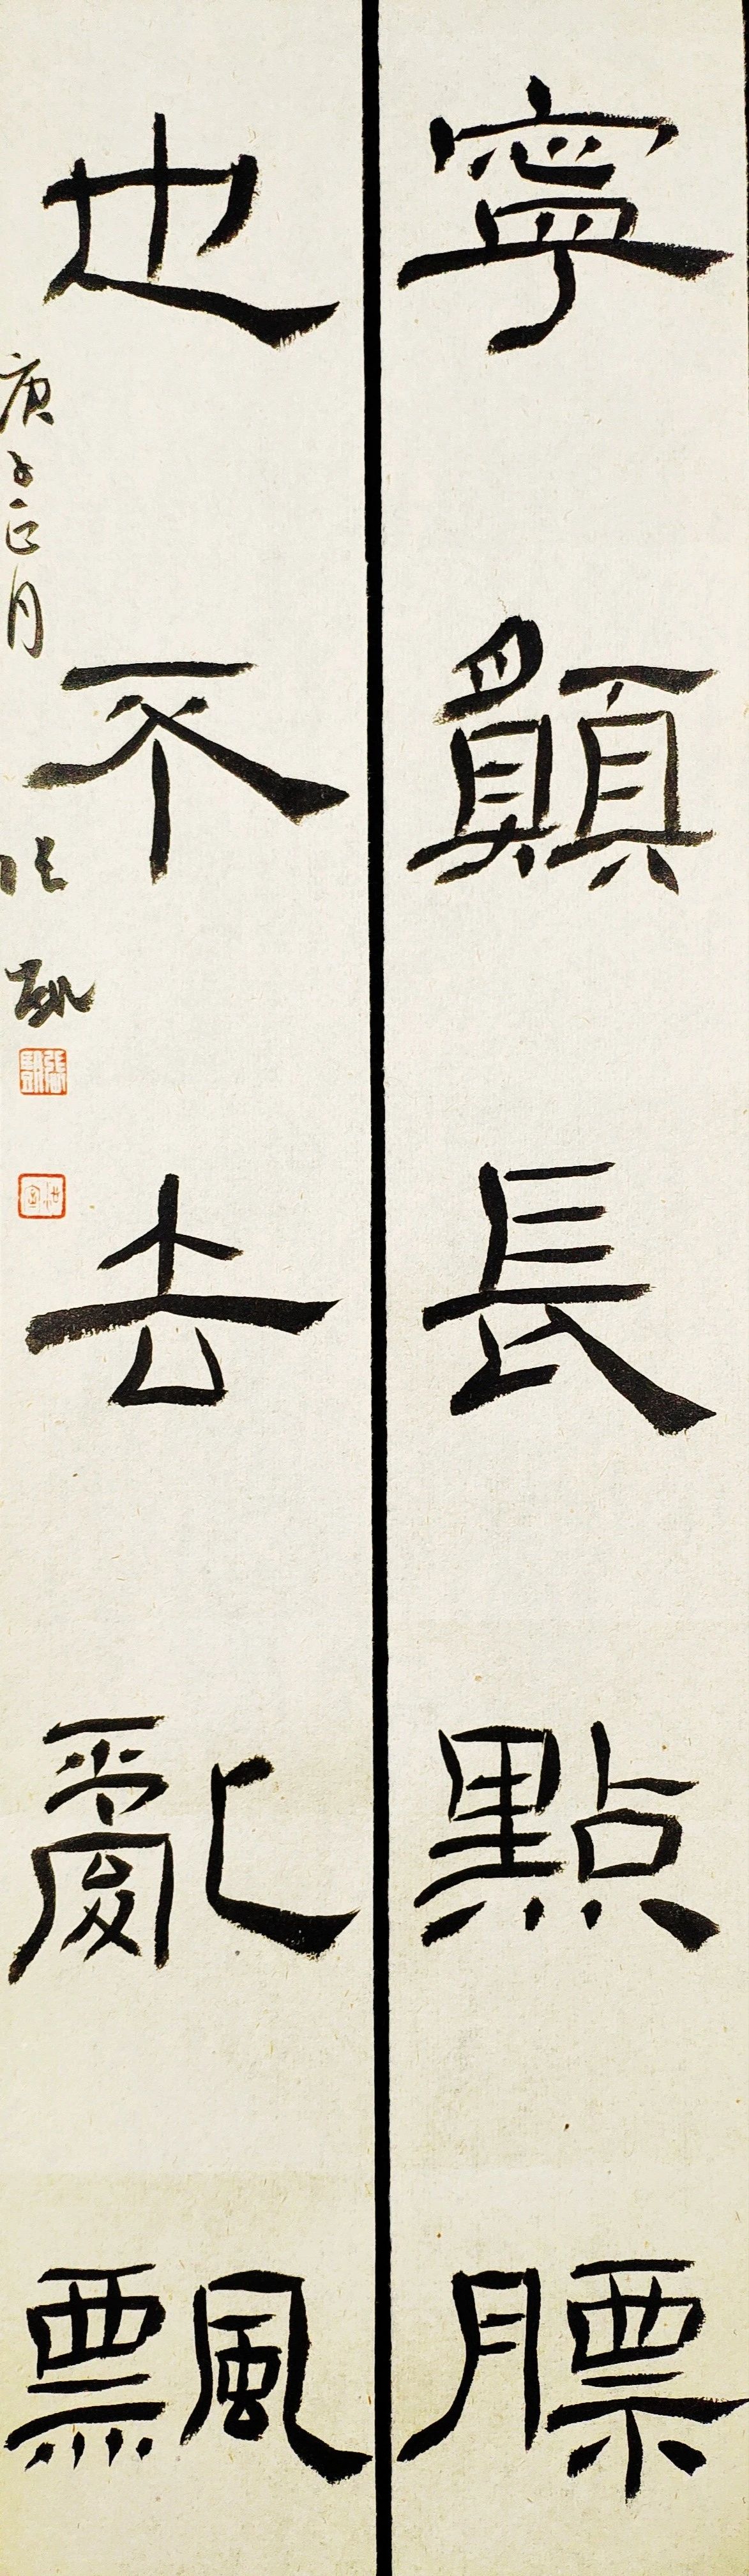 寧願長點膘
也不去亂飄
庚子正月
張凱
張凱